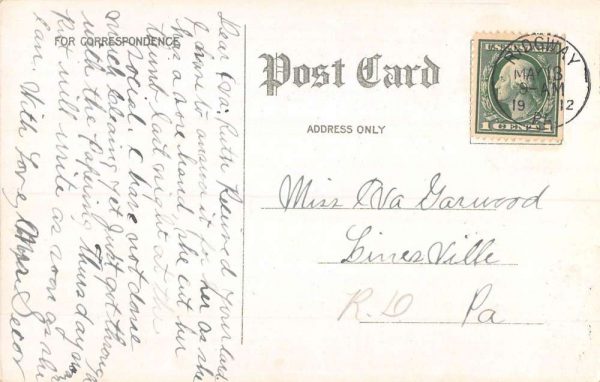 FOR CORRESPONDENCE
Post Card
ADDRESS ONLY
U.S. POSTAGE
1 CENT 1
RIDGWAY
MAY 13
9-AM
19 12
PA.
Miss Eva Garwood
LinesVille
R.D Pa
Dear Eva: Ruth Received your card
I have to answer it for her as she
has a sore hand. she cut her
hand last night at the
Social. I have not done
much cleaning yet just got through
with the papering Thursday
Ruth will write as soon as she
can. With Love Mrs Secor